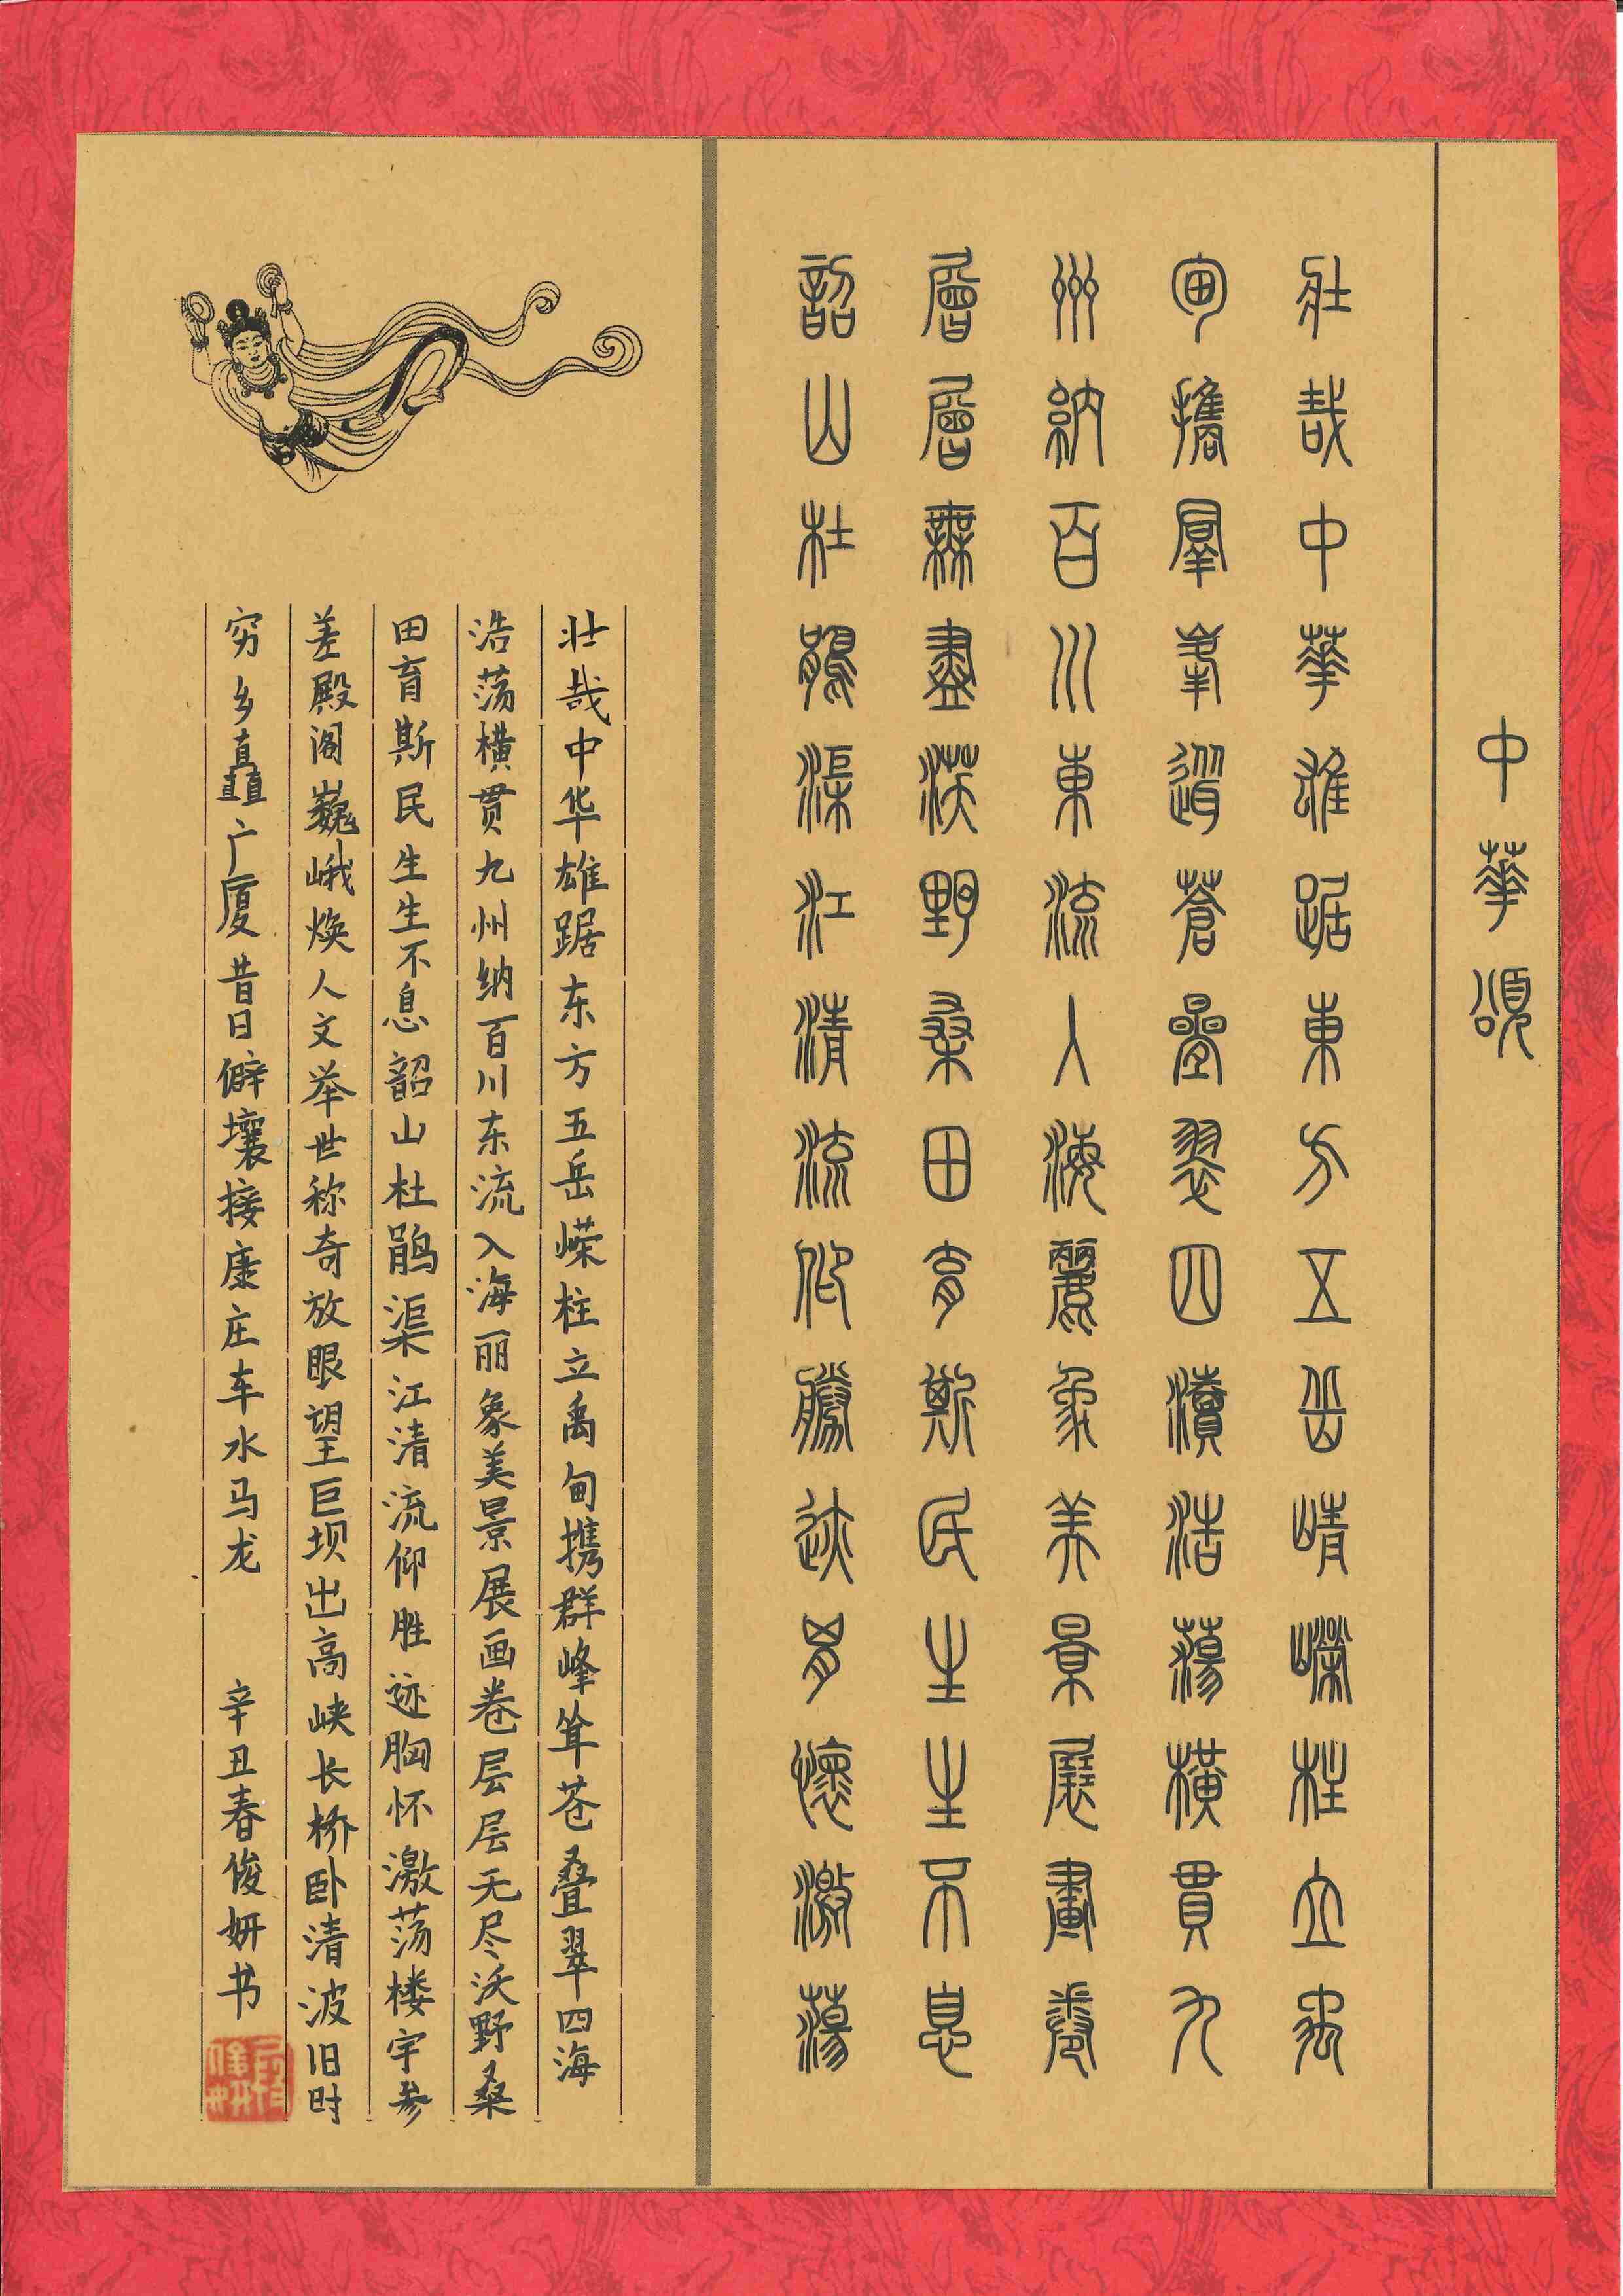 中華頌
壯哉中華雄踞東方五岳崝嶸柱立禹
甸攜羣峯蒼疊翠四瀆浩蕩橫貫九
州納百川東流入海麗象美景展畫卷
層層無盡沃野桑田育斯民生生不息
韶山杜鵑渠江清流仰勝迹胸懷激蕩
壮哉中华雄踞东方五岳嵘柱立禹甸携群峰耸苍叠翠四海
浩荡横贯九州纳百川东流入海丽象美景展画卷层层无尽沃野桑
田育斯民生生不息韶山杜鹃渠江清流仰胜迹胸怀激荡楼宇参
差殿阁巍峨焕人文举世称奇放眼望巨坝出高峡长桥卧清波旧时
穷乡矗广厦昔日僻壤接康庄车水马龙 辛丑春俊妍书